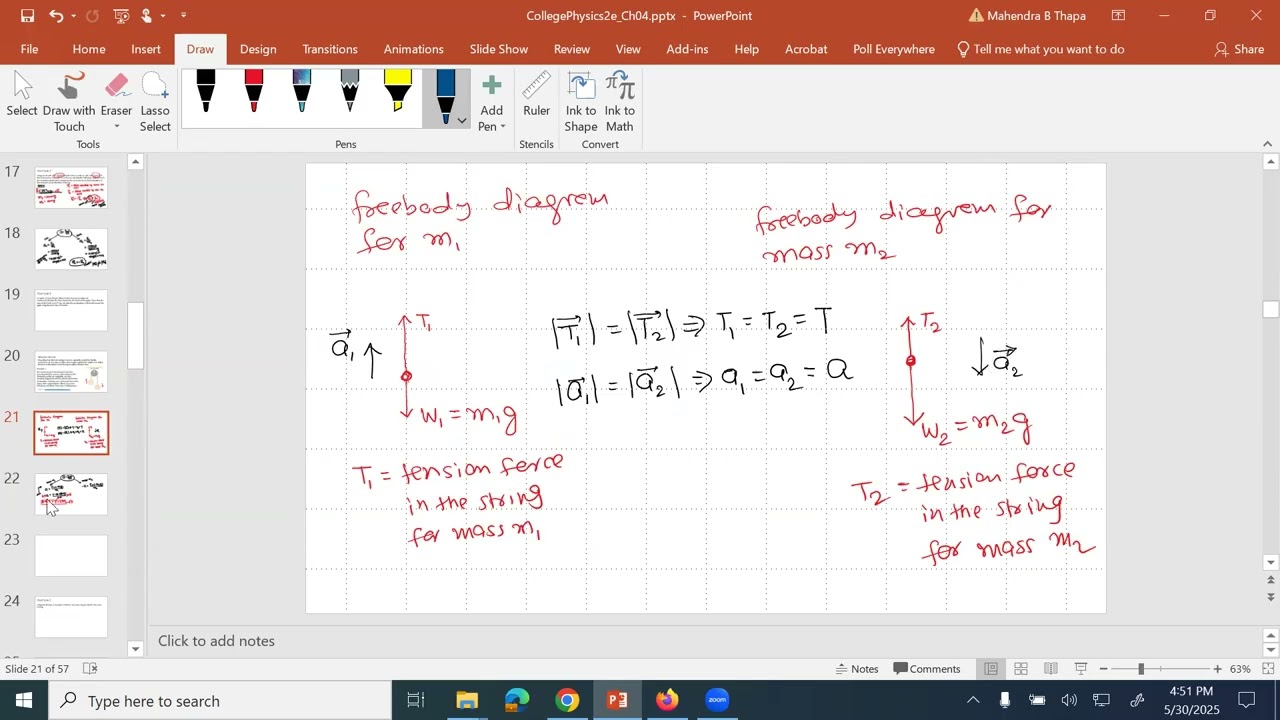 CollegePhysics2e_Ch04.pptx - PowerPoint
Mahendra B Thapa
File Home Insert Draw Design Transitions Animations Slide Show Review View Add-ins Help Acrobat Poll Everywhere Tell me what you want to do Share
Select Draw with Touch Eraser Lasso Select Add Pen Ruler Ink to Shape Ink to Math
Tools Pens Stencils Convert
17
18
19
20
21
22
23
24
freebody diagrem
for m₁
freebody diagrem for
mass m₂
T₁
a⃗₁
W₁ = m₁g
|T⃗₁| = |T⃗₂| ⇒ T₁ = T₂ = T
|a⃗₁| = |a⃗₂| ⇒ a₁ = a₂ = a
T₂
a⃗₂
W₂ = m₂g
T₁ = tension force
in the string
for mass m₁
T₂ = tension force
in the string
for mass m₂
Click to add notes
Slide 21 of 57 Notes Comments 63%
Type here to search
zoom
4:51 PM
5/30/2025